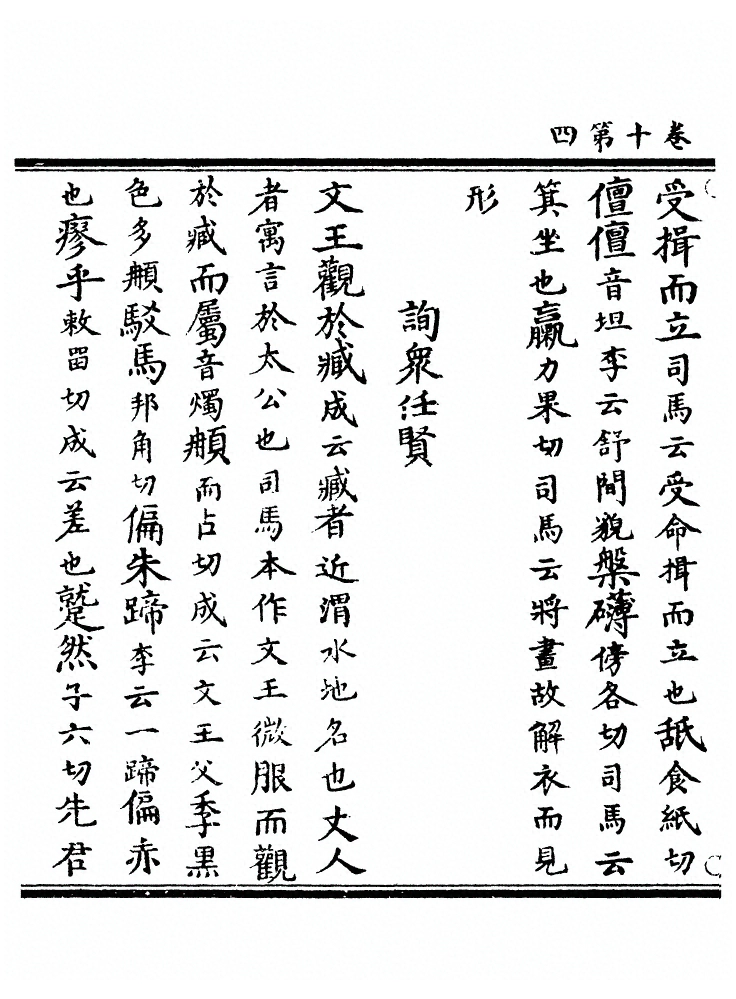 卷十第四
受揖而立司馬云受命揖而立也舐食紙切
儃儃音坦李云舒閒貌槃礴傍各切司馬云
箕坐也臝力果切司馬云將畫故解衣而見
形
詢衆任賢
文王觀於臧成云臧者近渭水地名也丈人
者寓言於太公也司馬本作文王微服而觀
於臧而屬音燭䫇而占切成云文王父季黑
色多䫇駁馬邦角切偏朱蹄李云一蹄偏赤
也瘳乎敕留切成云差也蹵然子六切先君